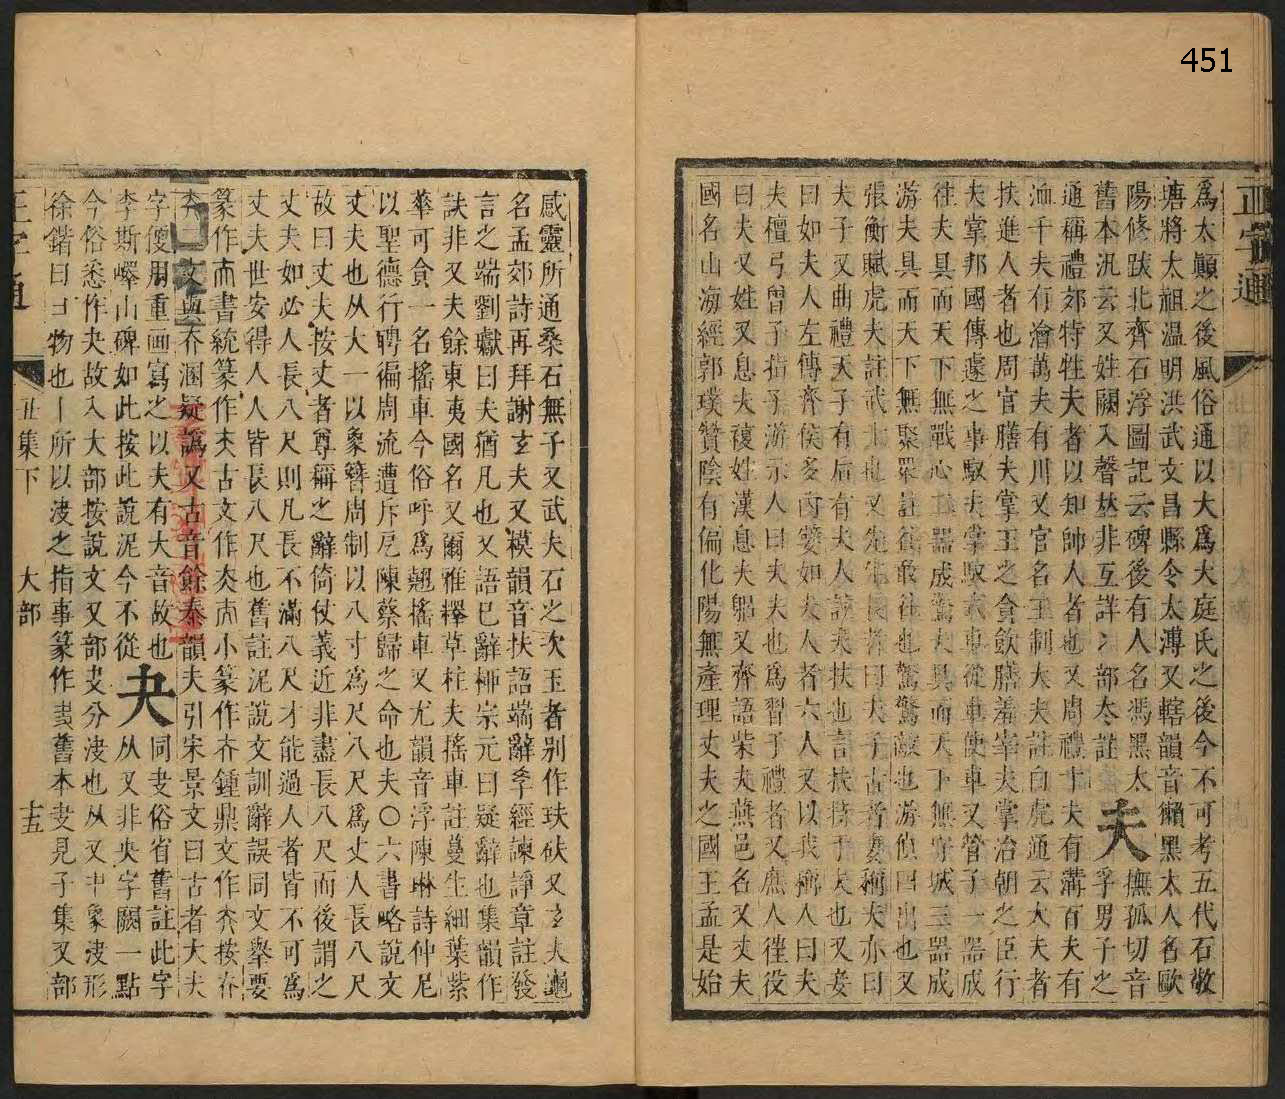 451
正字通
爲太顚之後風俗通以大爲大庭氏之後今不可考五代石敬
瑭將太祖温明洪武文昌縣令太溥又轄韻音獺黑太人名歐
陽修跋北齊石浮圖記云碑後有人名馮黑太
舊本汎云又姓闕入聲𠀤非互詳冫部冭註 夫 孚男子之
通稱禮郊特牲夫者以知帥人者也又周禮十夫有溝百夫有
洫千夫有澮萬夫有川又官名王制大夫註白虎通云大夫者
扶進人者也周官膳夫掌王之食飲膳羞宰夫掌治朝之臣行
夫掌邦國傳遽之事馭夫掌馭 車從車使車又管子一器成
往夫具而天下無戰心二器成驚夫具而天下無守城三器成
游夫具而天下無聚衆註 敢往也驚驚敵也游 四出也又
張衡賦虎夫註武士也又先生長者曰夫子古者妻稱夫亦曰
夫子又曲禮天子有后有夫人 夫扶也言扶持于夫也又妾
曰如夫人左傳齊侯多内嬖如夫人者六人又以我 人曰夫
夫檀弓曾子指子游示人曰夫夫也爲習于禮者又庶人徃役
曰夫又姓又息夫複姓漢息夫躬又齊語柴夫燕邑名又丈夫
國名山海經郭璞贊陰有偏化陽無產理丈夫之國王孟是始
感靈所通桑石無子又武夫石之次玉者别作玞砆又玄夫龜
名孟郊詩再拜謝玄夫又模韻音扶語端辭孝經諫諍章註發
言之端劉瓛曰夫猶凡也又語巳辭柳宗元曰疑辭也集韻作
訣非又夫餘東夷國名又爾雅釋草柱夫搖車註蔓生細葉紫
華可食一名搖車今俗呼爲翹搖車又尤韻音浮陳琳詩仲尼
以聖德行聘徧周流遭斥厄陳蔡歸之命也夫〇六書略說文
丈夫也从大一以象簪周制以八寸爲尺八尺爲丈人長八尺
故曰丈夫按丈者尊稱之辭倚仗義近非盡長八尺而後謂之
丈夫如必人長八尺則凡長不滿八尺才能過人者皆不可爲
丈夫世安得人人皆長八尺也舊註泥說文訓辭誤同文舉要
篆作 書統篆作夾古文作 小篆作 鍾鼎文作 按
文與 溷疑譌又古音餘泰韻夫引宋景文曰古者大夫
字便用重画寫之以夫有大音故也 夬 同叏俗省舊註此字
李斯嶧山碑如此按此說泥今不從 从又非夬字闕一點
今俗悉作夬故入大部按說文又部叏分決也从又 象決形
徐鍇曰 物也丨所以決之指事篆作 舊本叏見子集又部
正字通 丑集下 大部 十五